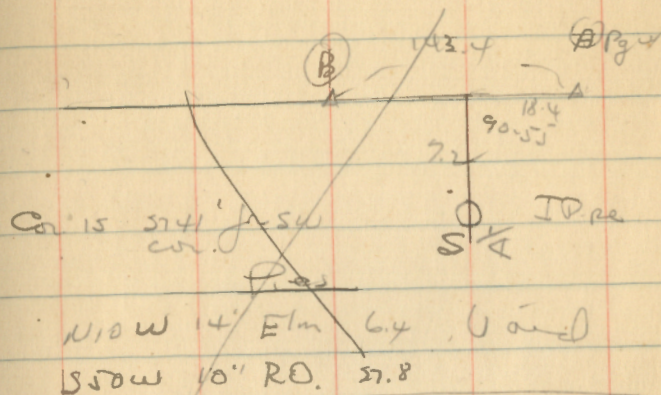 B 143.4 Pg
18.4
90.55
7.2
Cor is 5741' fr SW I Pipe
cor. S 1/4
Ties
N10W 14" Elm 6.4
S50W 10" R.O. 57.8